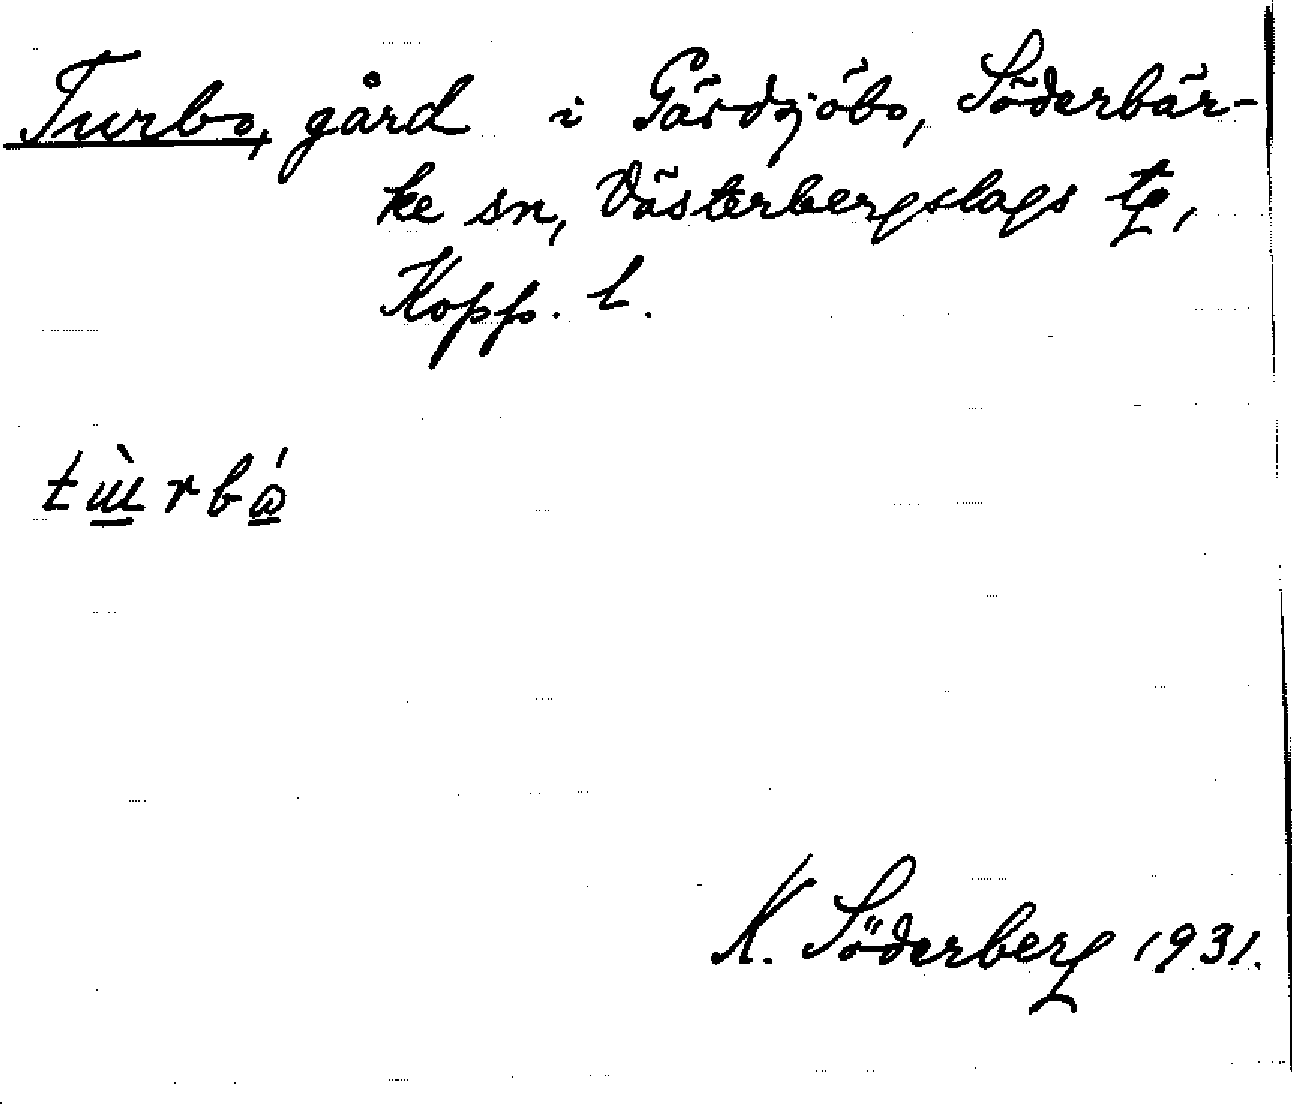 Turbo, gård i Gärdsjöbo, Söderbär-
ke sn, Västerbergslags tg,
Kopp. l.
K. Söderberg 1931.